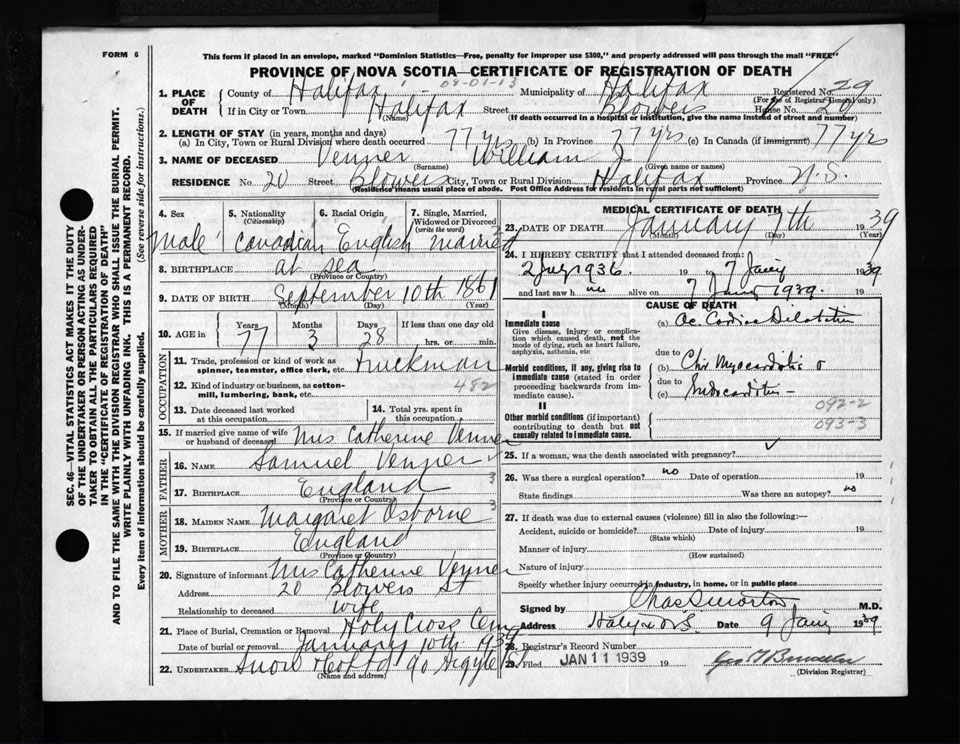 FORM 6
This form if placed in an envelope, marked "Dominion Statistics—Free, penalty for improper use $300," and properly addressed will pass through the mail "FREE"
PROVINCE OF NOVA SCOTIA—CERTIFICATE OF REGISTRATION OF DEATH
1. PLACE OF DEATH County of Halifax 08-01-13 Municipality of Halifax Registered No. 29
(For use of Registrar General only)
If in City or Town Halifax Street Blowers House No. 20
(Name) (If death occurred in a hospital or institution, give the name instead of street and number)
2. LENGTH OF STAY (in years, months and days)
(a) In City, Town or Rural Division where death occurred 77 yrs (b) In Province 77 yrs (c) In Canada (if immigrant) 77 yrs
3. NAME OF DECEASED Venner William J
(Surname) (Given name or names)
RESIDENCE No. 20 Street Blowers City, Town or Rural Division Halifax Province N.S.
(Residence means usual place of abode. Post Office Address for residents in rural parts not sufficient)
4. Sex 5. Nationality (Citizenship) 6. Racial Origin 7. Single, Married, Widowed or Divorced (write the word)
Male Canadian English married
8. BIRTHPLACE at sea
(Province or Country)
9. DATE OF BIRTH September 10th 1861
(Month) (Day) (Year)
10. AGE in Years Months Days If less than one day
77 3 28 hrs. or min.
OCCUPATION
11. Trade, profession or kind of work as spinner, teamster, office clerk, etc. Truckman
12. Kind of industry or business, as cotton-mill, lumbering, bank, etc. 482
13. Date deceased last worked at this occupation 14. Total yrs. spent in this occupation
15. If married give name of wife or husband of deceased Mrs Catherine Venner
FATHER
16. NAME Samuel Venner
17. BIRTHPLACE England 3
(Province or Country)
MOTHER
18. MAIDEN NAME Margaret Osborne 3
19. BIRTHPLACE England
(Province or Country)
20. Signature of informant Mrs Catherine Venner
Address 20 Blowers St
Relationship to deceased wife
21. Place of Burial, Cremation or Removal Holy Cross Cem
Date of burial or removal January 10th 1939
22. UNDERTAKER Snow & Co Ltd 90 Argyle St
(Name and address)
MEDICAL CERTIFICATE OF DEATH
23. DATE OF DEATH January 7th 1939
(Month) (Day) (Year)
24. I HEREBY CERTIFY that I attended deceased from:
2 July 1936 19 to 7 Jany 1939
and last saw h alive on 7 Jany 1939.
CAUSE OF DEATH
I
Immediate cause
Give disease, injury or complication which caused death, not the mode of dying, such as heart failure, asphyxia, asthenia, etc
(a) Ac Cardiac Dilatation
due to
Morbid conditions, if any, giving rise to immediate cause (stated in order proceeding backwards from immediate cause).
(b) Chr Myocarditis
due to
(c) Endocarditis
092-2
II
093-3
Other morbid conditions (if important) contributing to death but not causally related to immediate cause.
25. If a woman, was the death associated with pregnancy?
26. Was there a surgical operation? no Date of operation 19
State findings Was there an autopsy? no
27. If death was due to external causes (violence) fill in also the following:—
Accident, suicide or homicide? Date of injury 19
(State which)
Manner of injury
(How sustained)
Nature of injury
Specify whether injury occurred in industry, in home, or in public place
Signed by Chas S Morton M.D.
Address Halifax N.S. Date 9 Jany 1939
28. Registrar's Record Number
29. Filed JAN 11 1939 19
(Division Registrar)
SEC. 46—VITAL STATISTICS ACT MAKES IT THE DUTY
OF THE UNDERTAKER OR PERSON ACTING AS UNDERTAKER TO OBTAIN ALL THE PARTICULARS REQUIRED
IN THE "CERTIFICATE OF REGISTRATION OF DEATH"
AND TO FILE THE SAME WITH THE DIVISION REGISTRAR WHO SHALL ISSUE THE BURIAL PERMIT.
WRITE PLAINLY WITH UNFADING INK. THIS IS A PERMANENT RECORD.
Every item of information should be carefully supplied. (See reverse side for instructions.)